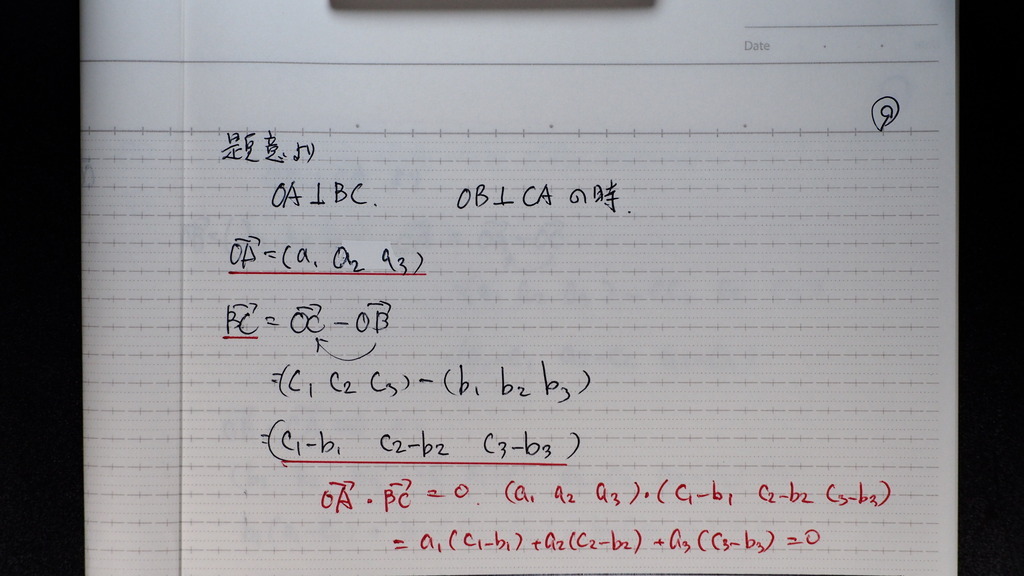 Date
9
題意より
OA⊥BC. OB⊥CA の時.
→OA=(a₁ a₂ a₃)
→BC = →OC − →OB
=(C₁ C₂ C₃)−(b₁ b₂ b₃)
=(C₁−b₁ C₂−b₂ C₃−b₃)
→OA・→BC = 0. (a₁ a₂ a₃)・(C₁−b₁ C₂−b₂ C₃−b₃)
= a₁(C₁−b₁)+a₂(C₂−b₂)+a₃(C₃−b₃)=0